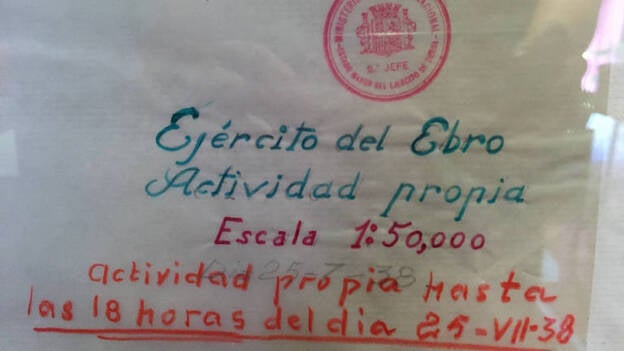 MINISTERIO
NACIONAL
EL JEFE
ESTADO MAYOR DEL EJERCITO DE TIERRA
Ejército del Ebro
Actividad propia
Escala 1:50,000
Dia 25-7-38
actividad propia hasta
las 18 horas del dia 25-VII-38